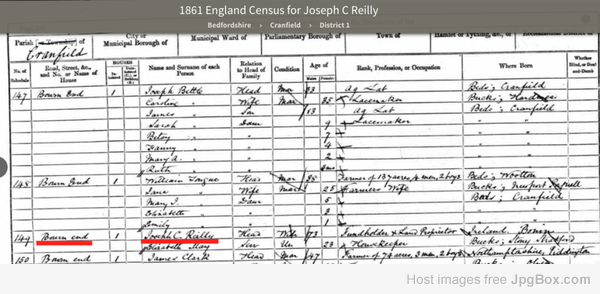 1861 England Census for Joseph C Reilly
Bedfordshire › Cranfield › District 1
Parish [or Township] of
City or Municipal Borough of
Municipal Ward of
Parliamentary Borough of
Town of
Hamlet or Tything, &c., of
Cranfield
No. of Schedule
Road, Street, &c., and No. or Name of House
HOUSES
Name and Surname of each Person
Relation to Head of Family
Condition
Age of
Males
Females
Rank, Profession, or Occupation
Where Born
Whether Blind, or Deaf-and-Dumb
147 Bourn End 1 Joseph Head Mar 33 Ag Lab Beds; Cranfield
Caroline " Wife Mar 35 Lacemaker Bucks;
James " Son 13 Ag Lab Beds; Cranfield
Sarah " Daur 9 Lacemaker " "
Betsy " " 7 " "
Fanny " " 4 " "
Mary A. " " 2 " "
Ruth " "
148 Bourn End 1 William Head Mar 35 Farmer of 137 acres, 4 men, 2 boys Beds; Wootton
Jane " Wife Mar 25 Farmers Wife Bucks; Newport Pagnell
Mary J. " Daur 5 Beds; Cranfield
Elizabeth " " 3 " "
Emily " " 1 " "
149 Bourn end 1 Joseph C. Reilly Head 73 Fundholder & Land Proprietor Ireland
Elizabeth May Ser Un 23 Housekeeper Bucks; Stony Stratford
150 Bourn end 1 James Clark Head Mar 47 Farmer of 72 acres, 3 men, 2 boys Northamptonshire,
Host images free JpgBox.com